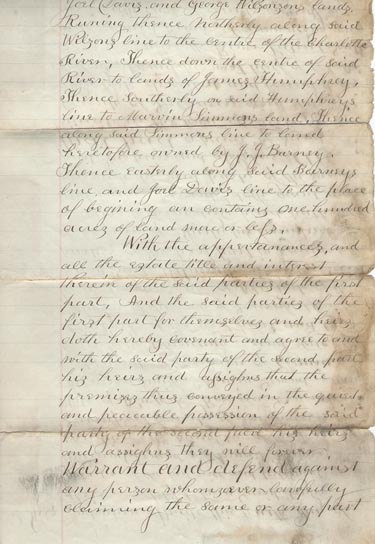 Joel Davis, and George Wilzonzs lands,
Runing thence Northerly along said
Wilzons line to the centre of the Charlotte
River, Thence down the centre of said
River to lands of James Humphrey,
Thence Southerly on said Humphreys
line to Marvin Simmons land, Thence
along said Simmons line to land
heretofore owned by J. J. Barney,
Thence easterly along said Barneys
line and Joel Davis line to the place
of begining an contains one hundred
acres of land more or less.
With the appertanances, and
all the estate title and interest
therein of the said parties of the first
part, And the said parties of the
first part for themselves and heirs
doth hereby covenant and agree to and
with the said party of the second part
his heirs and assighns that the
premises thus conveyed in the quiet
and peiceible possession of the said
party of the second part his heirs
and assighns they will forever
Warrant and defend against
any person whomzoever lawfully
claiming the same or any part